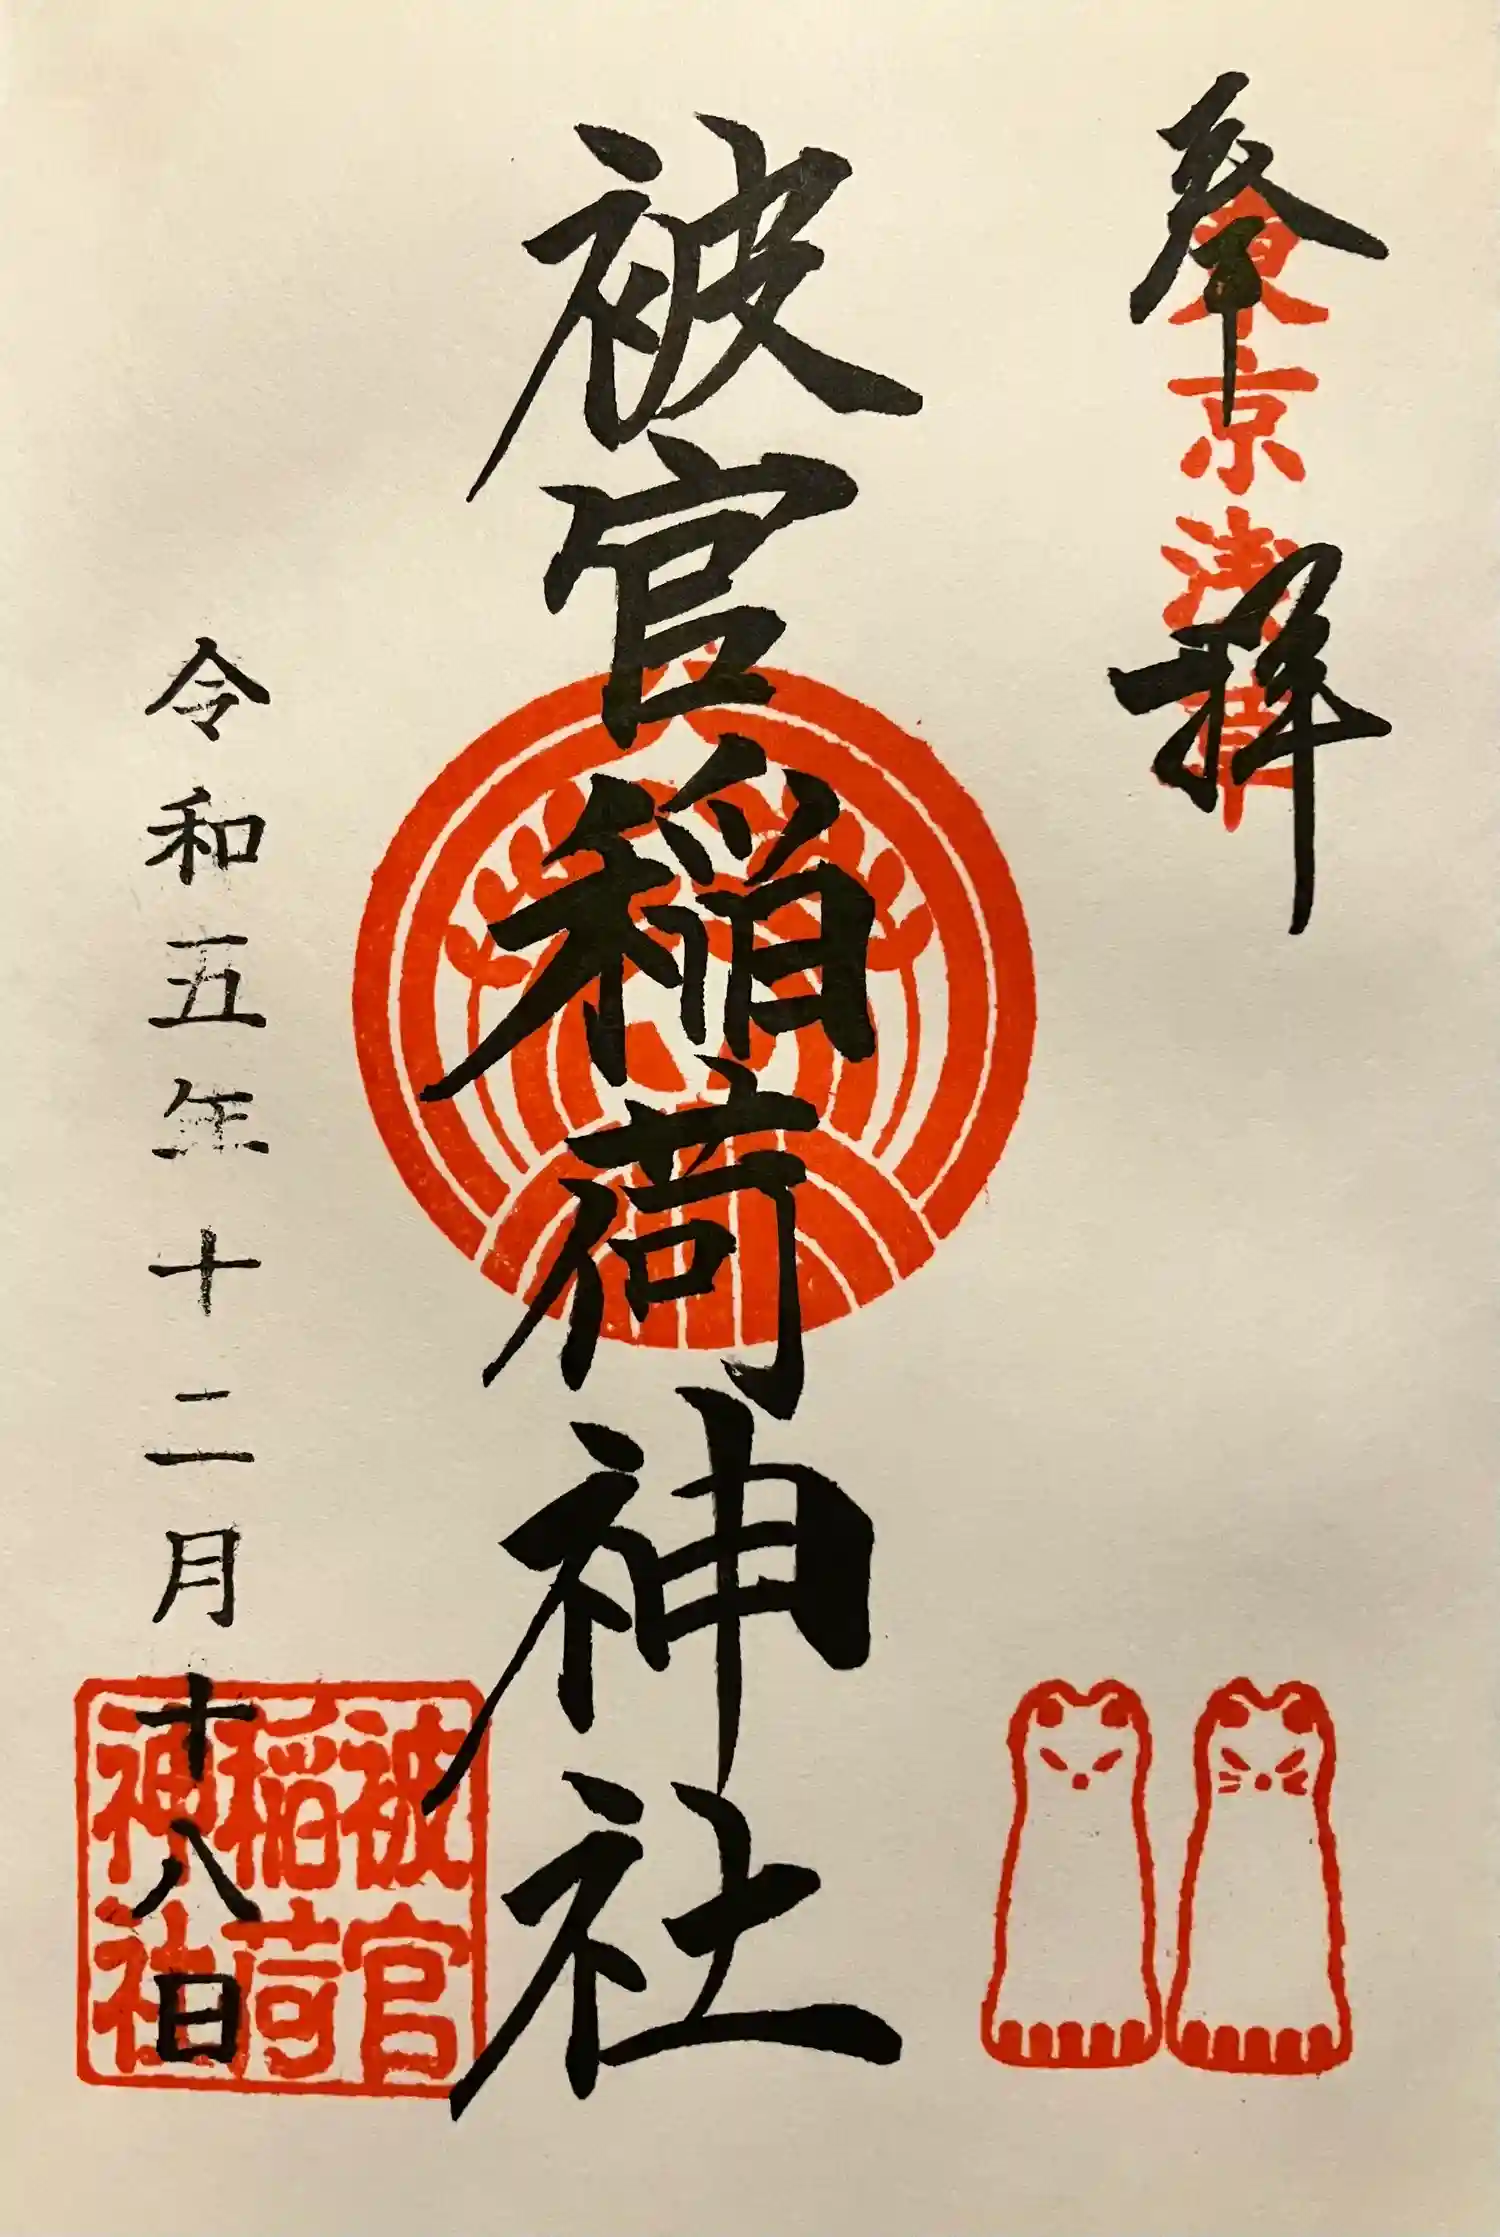 奉拝
東京浅草
被官稲荷神社
令和五年十二月十八日
被官
稲荷
神社